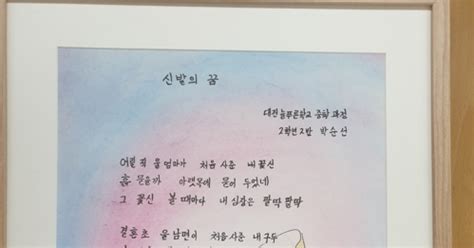 신발의 꿈
대전늘푸른학교 중학과정
2학년 2반 박순선
어릴 적 울엄마가 처음 사준 내 꽃신
흙 묻을까 아랫목에 묻어 두었네
그 꽃신 볼 때마다 내 심장은 팔딱 팔딱
결혼초 울 남편이 처음 사준 내 구두